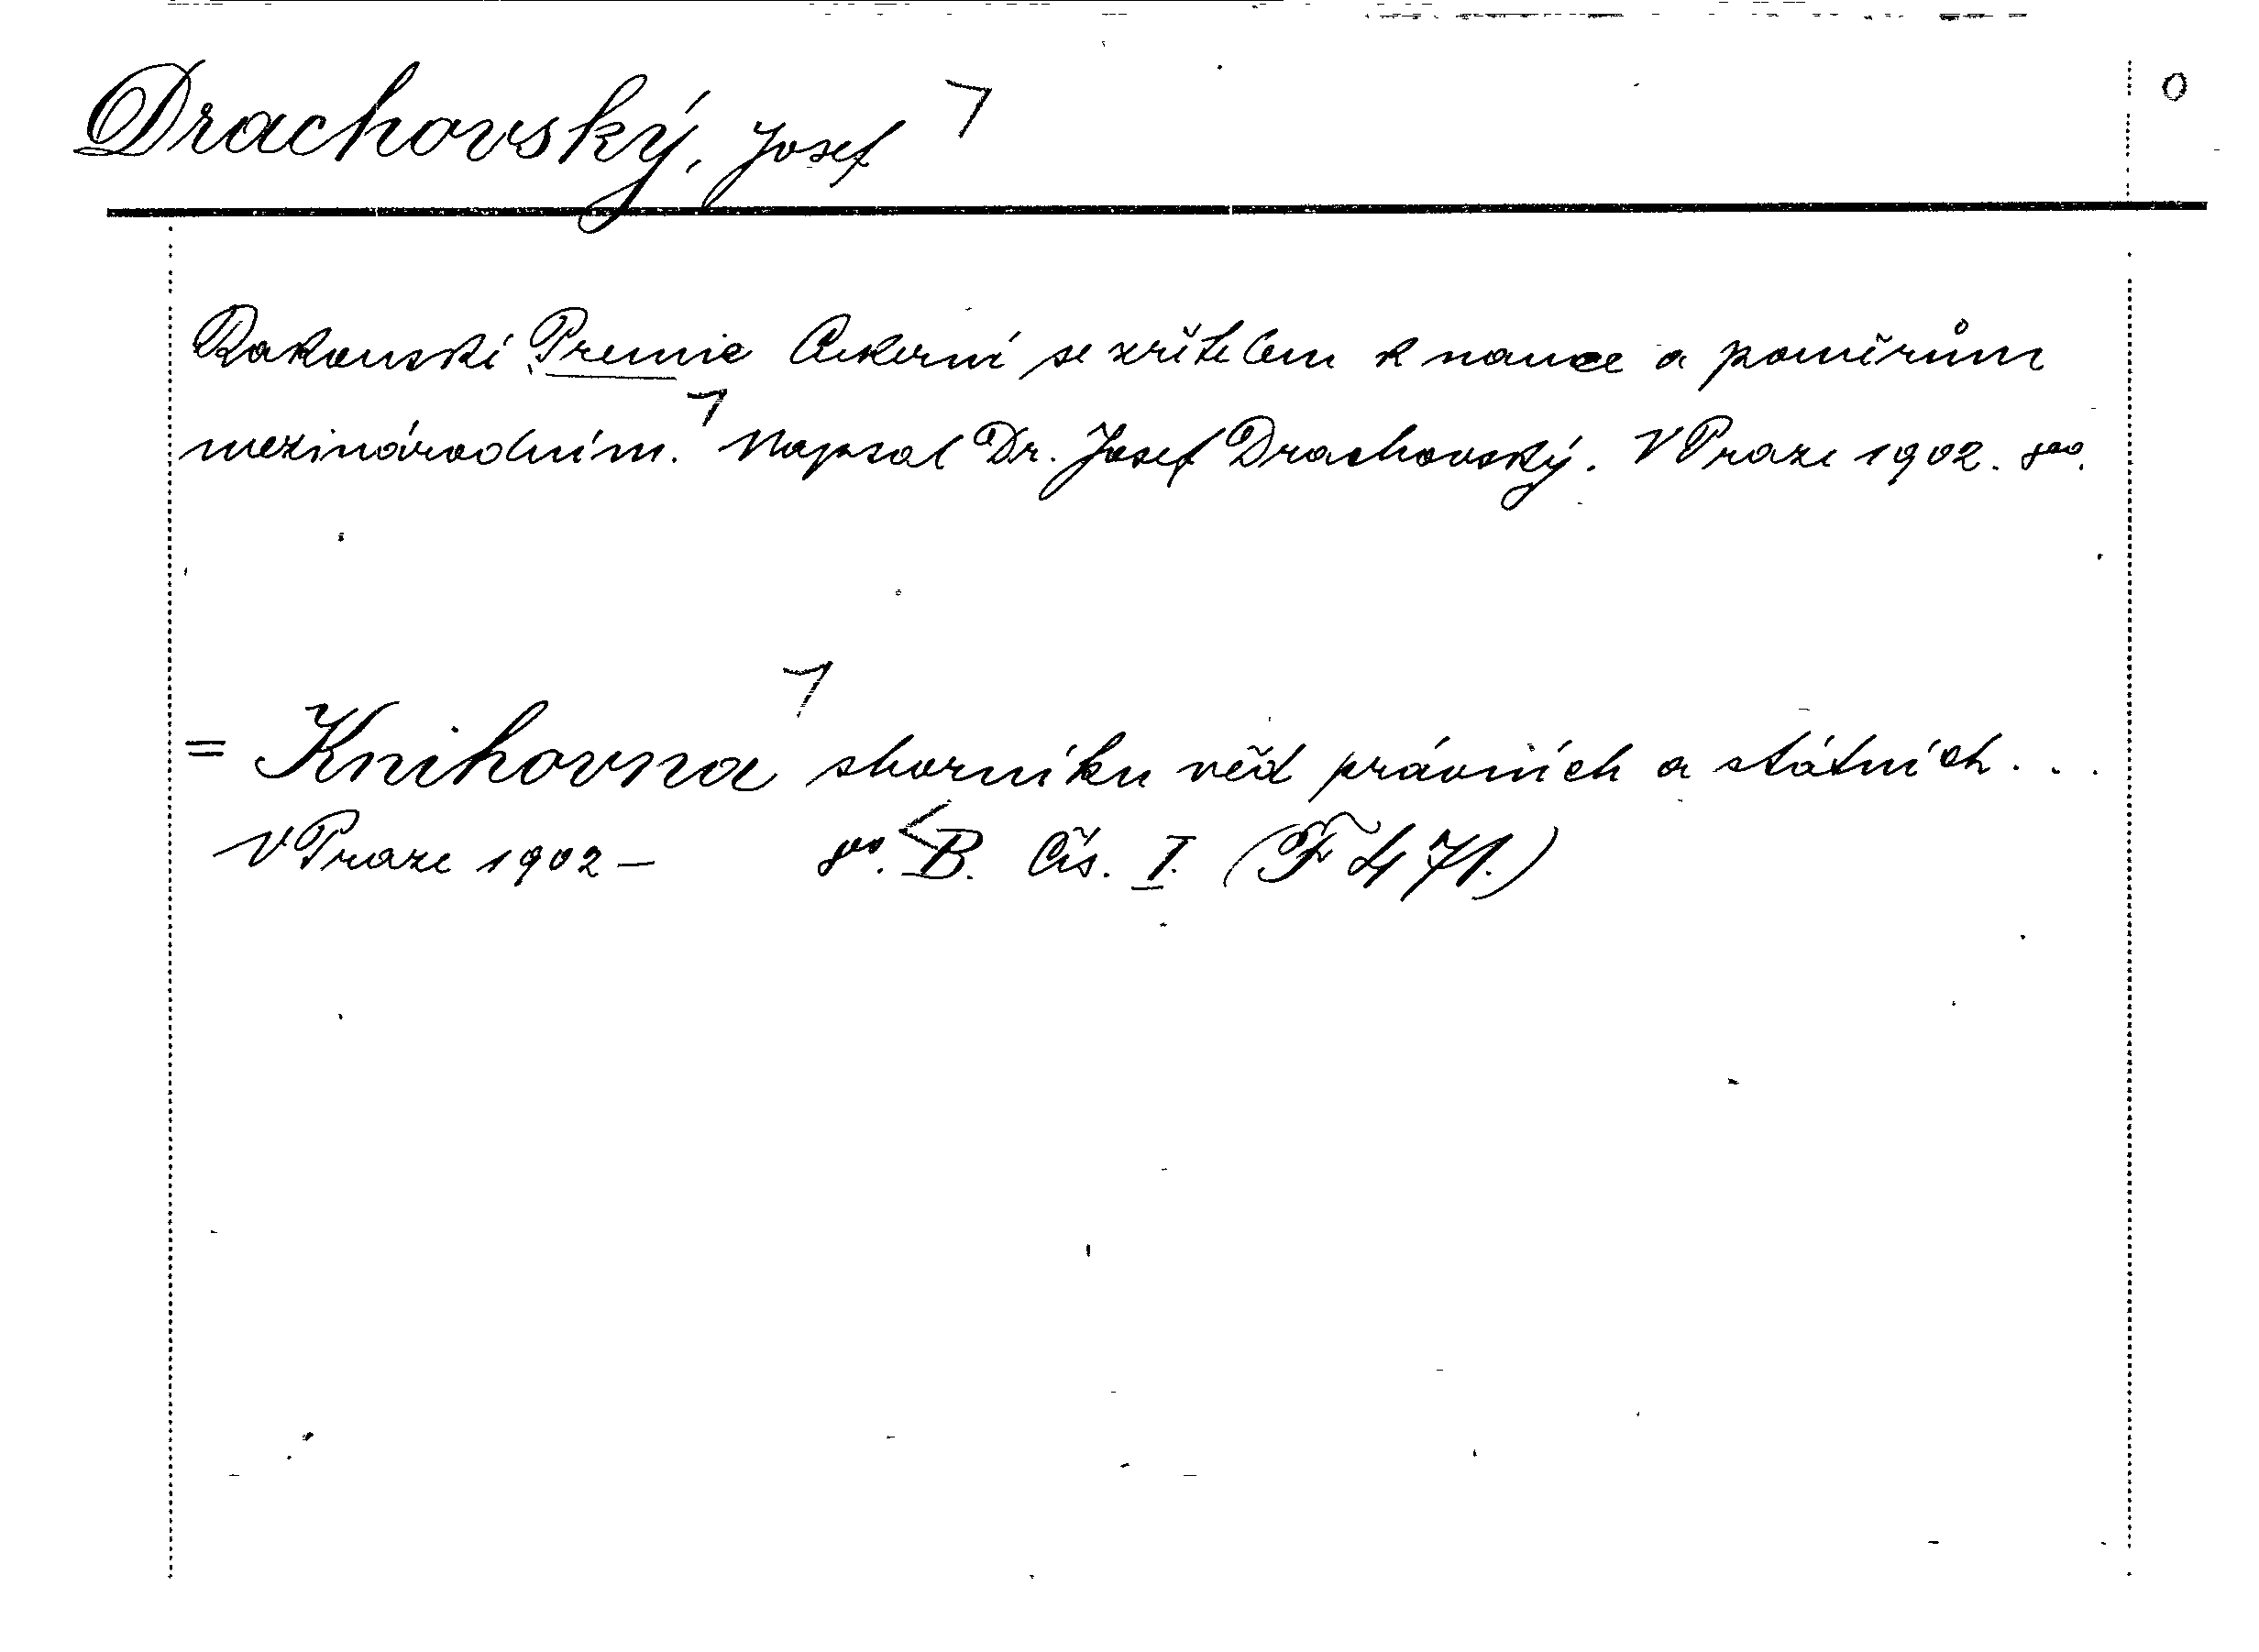 Drachovský, Josef
0
Rakouské Premie Cukerní se zřítelem k nauce a poměrům
mezinárodním. Napsal Dr. Josef Drachovský. V Praze 1902. 8vo.
= Knihovna sborníku věd právních a státních...
V Praze 1902 – 8vo. B. Čís. I. (F 471.)